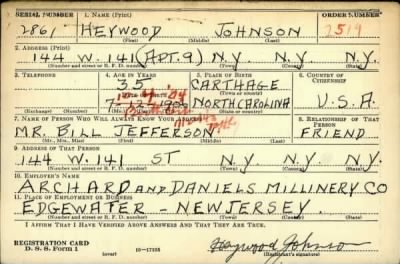 SERIAL NUMBER 1. NAME (Print) ORDER NUMBER
2861 HEYWOOD JOHNSON 2519
(First) (Middle) (Last)
2. ADDRESS (Print)
144 W. 141 (APT. 9) N.Y. N.Y.
(Number and street or R. F. D. number) (Town) (County) (State)
3. TELEPHONE 4. AGE IN YEARS 5. PLACE OF BIRTH 6. COUNTRY OF CITIZENSHIP
35 CARTHAGE
DATE OF BIRTH (Town or county)
7-12-190 NORTH CAROLINA U.S.A.
(Exchange) (Number) (Mo.) (Day) (Yr.) (State or country)
7. NAME OF PERSON WHO WILL ALWAYS KNOW YOUR ADDRESS 8. RELATIONSHIP OF THAT PERSON
MR. BILL JEFFERSON FRIEND
(Mr., Mrs., Miss) (First) (Middle) (Last)
9. ADDRESS OF THAT PERSON
144 W. 141 ST N.Y. N.Y. N.Y.
(Number and street or R. F. D. number) (Town) (County) (State)
10. EMPLOYER'S NAME
ARCHARD AND DANIELS MILLINERY CO
11. PLACE OF EMPLOYMENT OR BUSINESS
EDGEWATER - NEW JERSEY.
(Number and street or R. F. D. number) (Town) (County) (State)
I AFFIRM THAT I HAVE VERIFIED ABOVE ANSWERS AND THAT THEY ARE TRUE.
REGISTRATION CARD
D. S. S. Form 1 (over) 16-17105 Heywood Johnson
(Registrant's signature)